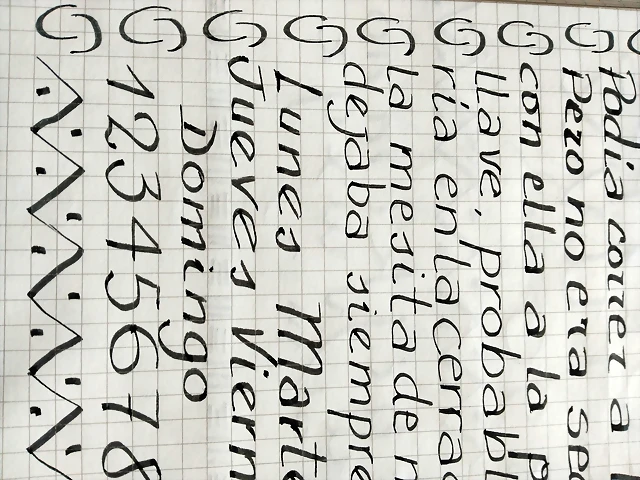 Podia correr a
Pero no era se
con ella a la p
llave, probabl
ría en la cerra
la mesita de n
dejaba siempre
Lunes Marte
Jueves Viern
Domingo
12345678